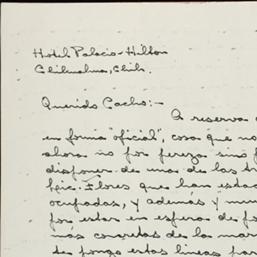 Hotel Palacio-Hilton
Chihuahua, Chih.
Querido Cacho:-
A reserva
en forma "oficial", cosa que no
ahora no por pereza sino
disponer de una de las
Flores que han estado
ocupadas, y además y
por estar en espera de
más concretas de la
te pongo estas lineas par